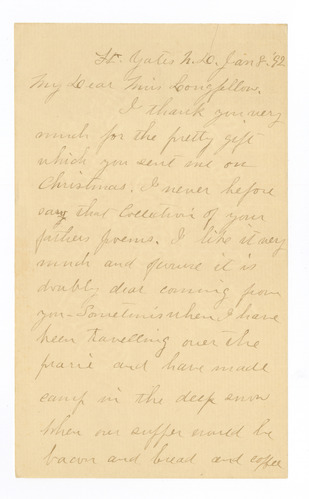 Ft. Yates N.D. Jan 8. '92
My Dear Miss Longfellow.
I thank you very
much for the pretty gift
which you sent me on
Christmas. I never before
saw that Collation of your
fathers poems. I like it very
much and it is
doubly dear coming from
you - Sometimes when I have
been travelling over the
prarie and have made
camp in the deep snow
when our supper would be
bacon and bread and coffee